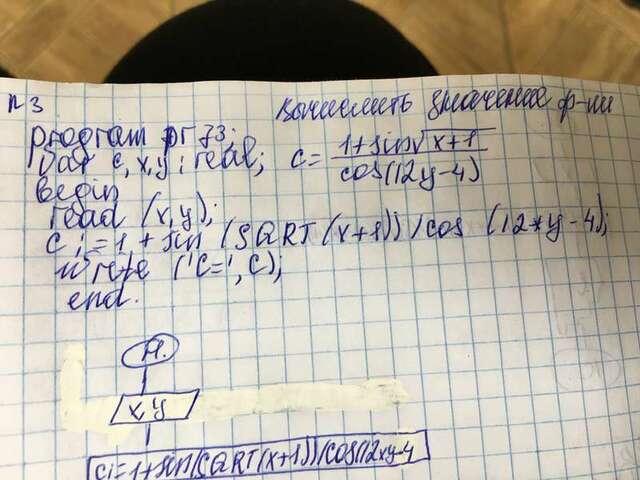 n 3 Вычислить значение ф-ии
program pr 73;
Var c, x, y : real; c = 1+sin√x+1 / cos(12y-4)
begin
read (x,y);
c := 1 + sin (SQRT(x+1)) / cos (12*y-4);
write ('c=', c);
end.
Н.
x, y
c:=1+sin(SQRT(x+1))/cos(12*y-4